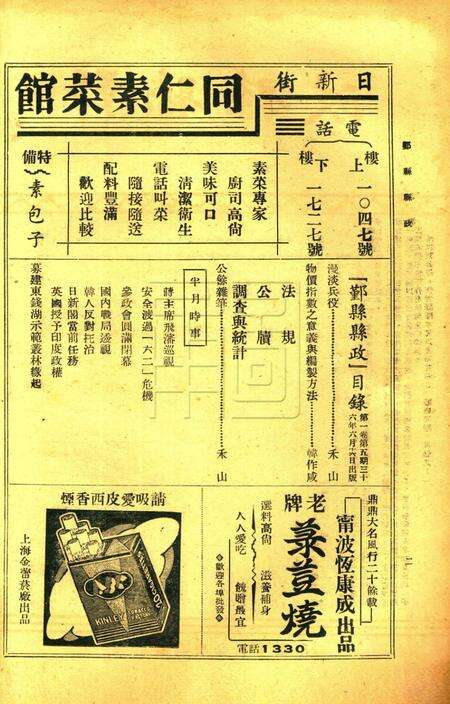 鄞縣縣政
日新街
同仁素菜館
電話
樓上 一〇四七號
樓下 一七二七號
素菜專家
廚司高尚
美味可口
清潔衛生
電話叫菜
隨接隨送
配料豐滿
歡迎比較
特備
素包子
「鄞縣縣政」目錄
第一卷第五期三十
六年六月十六日出版
漫淡兵役………禾山
物價指數之意義與編製方法………韓作咸
法規
公牘
調查與統計
公餘雜筆………禾山
半月時事
蔣主席飛瀋巡視
安全渡過「六二」危機
參政會圓滿閉幕
國內戰局透視
韓人反對托治
日新閣當前任務
英國授予印度政權
募建東錢湖示範叢林緣起
鼎鼎大名風行二十餘載
甯波恆康成出品
老牌
菉荳燒
選料高尚 滋養補身
人人愛吃 餽贈最宜
歡迎各埠批發
電話1330
請吸愛皮西香煙
KINLEY TOBACCO
上海金薈菸廠出品